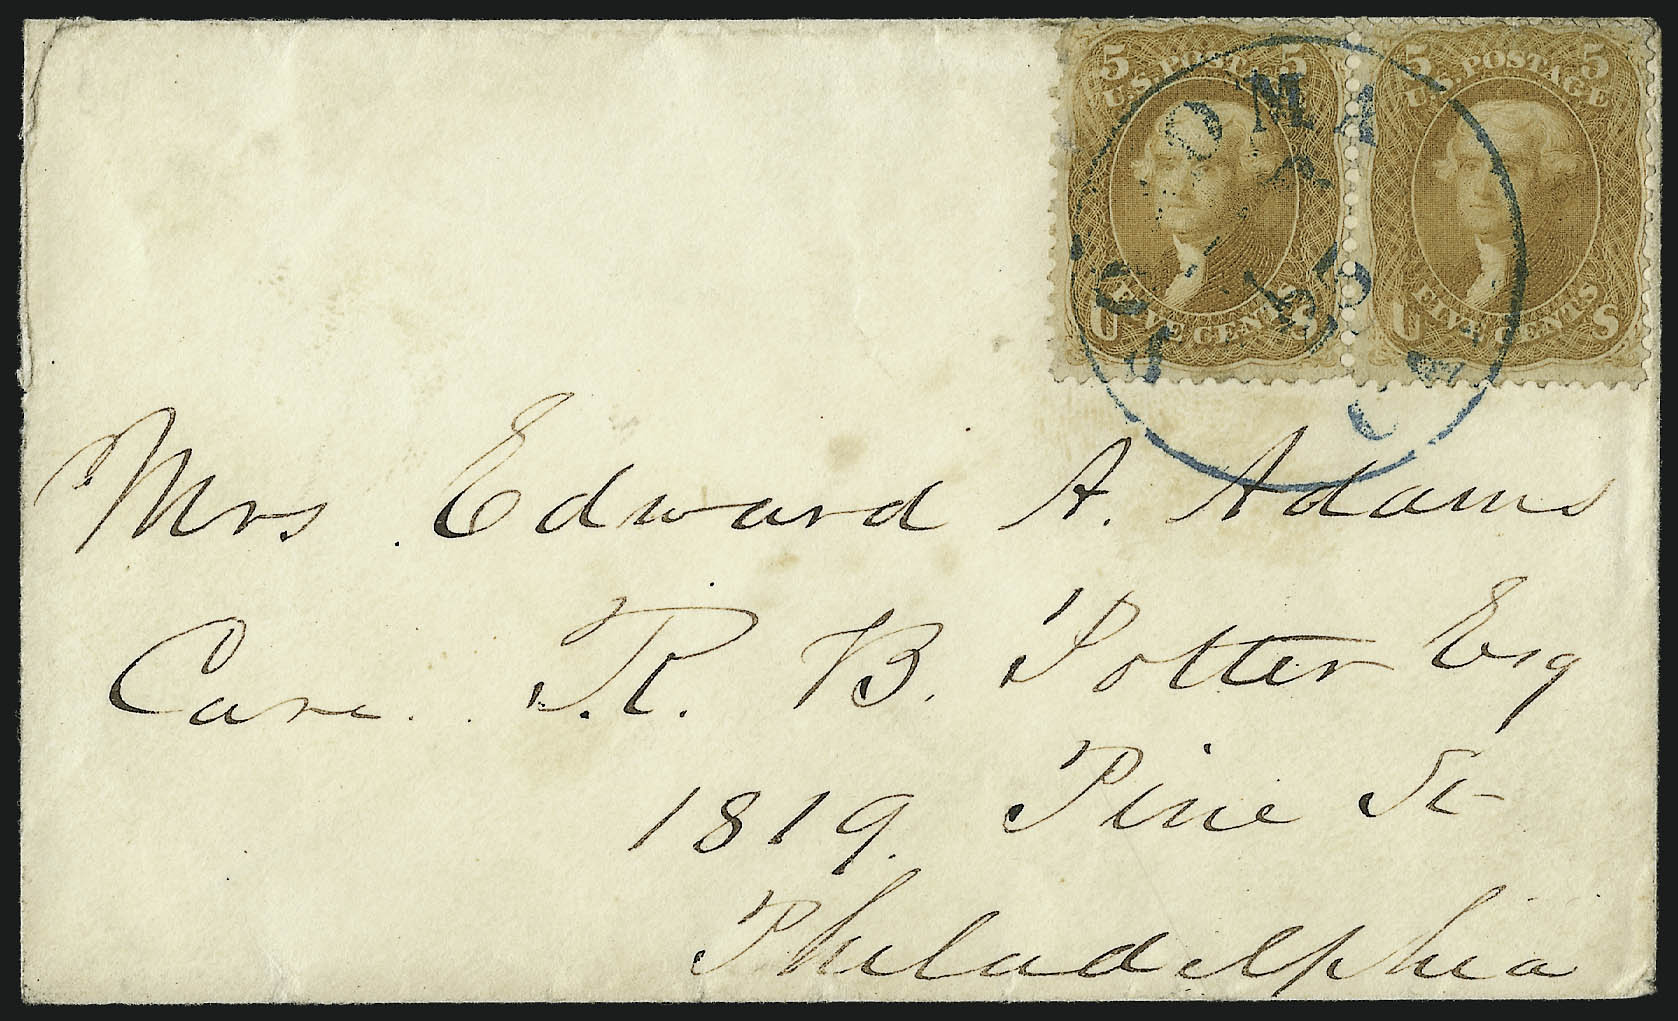 5 U.S. POSTAGE 5
U FIVE CENTS S
5 U.S. POSTAGE 5
U FIVE CENTS S
Mrs Edward A. Adams
Care. R. B. Potter Esq
1819. Pine St
Philadelphia